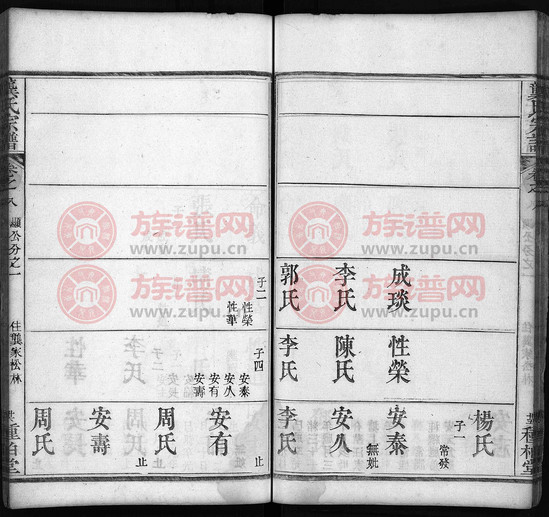 龔氏宗譜
成琰
李氏
郭氏
子二
性榮
性華
性榮
陳氏
李氏
子四
安泰
安久
安有
安壽
楊氏
子一
常發
安泰
無妣
安久
李氏
安有
止
周氏
止
安壽
周氏
龔氏宗譜
卷之八
顯公分之一
住龔家松林
種柏堂
族谱网
www.zupu.cn
族谱网
www.zupu.cn